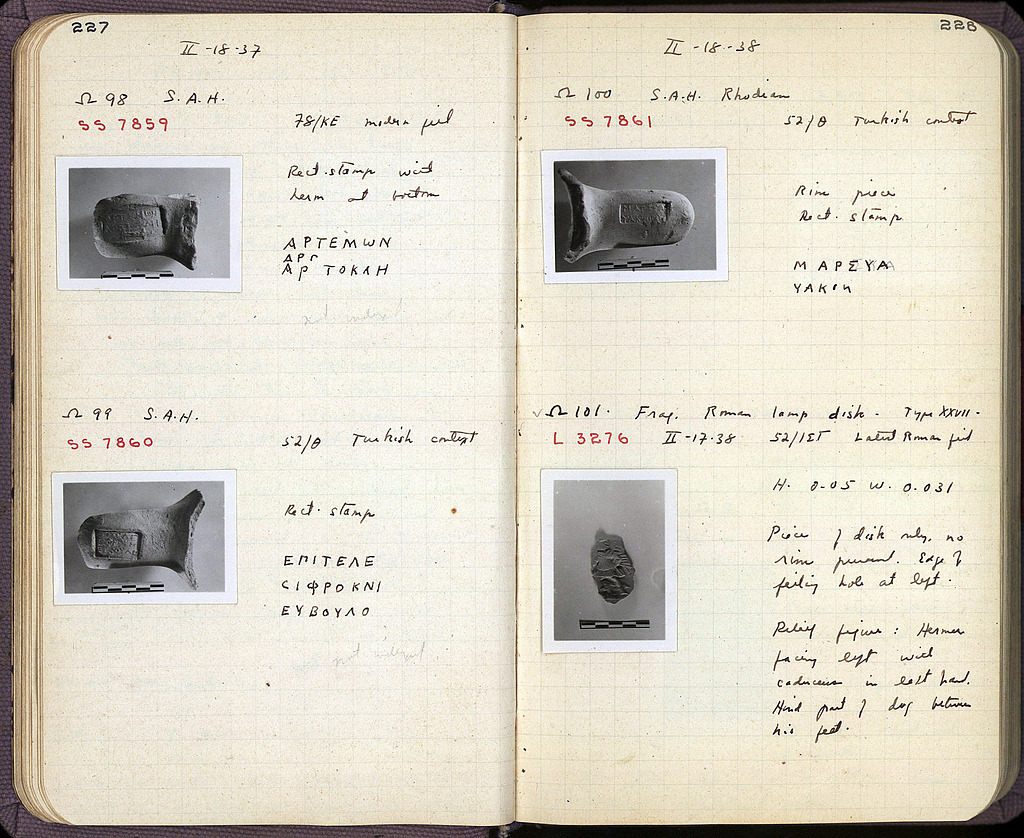 227
II-18-37
Ω 98 S.A.H.
SS 7859
78/ΚΕ modern fill
Rect. stamp with
herm at bottom
ΑΡΤΕΜΩΝ
ΑΡΓ
ΑΡ ΤΟΚΛΗ
not indexed
Ω 99 S.A.H.
SS 7860
52/Θ Turkish context
Rect. stamp
ΕΠΙΤΕΛΕ
CΙΦΡΟΚΝΙ
ΕΥΒΟΥΛΟ
not indexed
228
II-18-38
Ω 100 S.A.H. Rhodian
SS 7861
52/Θ Turkish context
Rim piece
Rect. stamp
ΜΑΡΣΥΑ
ΥΑΚΙΝ
Ω 101. Frag. Roman lamp disk. Type XXVII.
L 3276 II-17-38 52/ΙΣΤ Latest Roman fill
H. 0.05 W. 0.031
Piece of disk only, no
rim preserved. Edge of
filling hole at left.
Relief figure: Hermes
facing left with
caduceus in left hand.
Hind part of dog between
his feet.